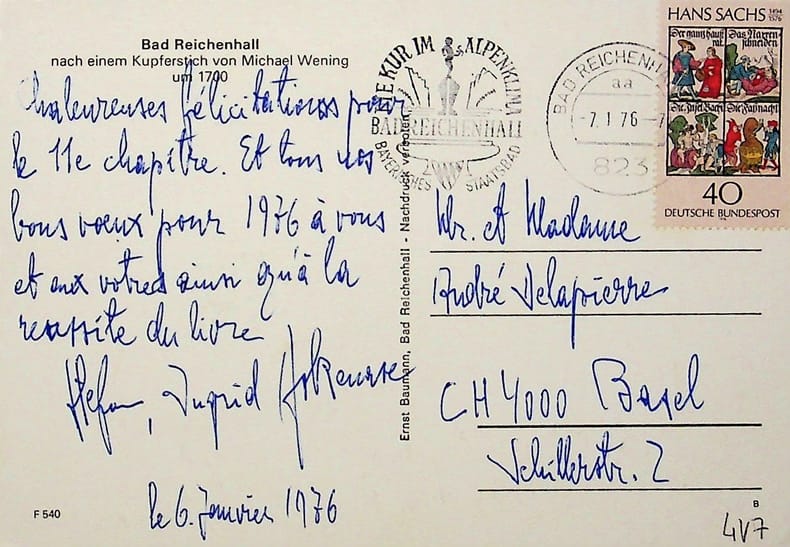 Bad Reichenhall
nach einem Kupferstich von Michael Wening
um 1700
Chaleureuses félicitations pour
le 11e chapître. Et tous nos
bons voeux pour 1976 à vous
et aux votres ainsi qu'à la
reussite du livre
Stefan, Ingrid
le 6. Janvier 1976
F 540
Ernst Baumann, Bad Reichenhall - Nachdruck verboten
DIE KUR IM ALPENKLIMA
BAD REICHENHALL
BAYERISCHES STAATSBAD
BAD REICHENHALL
aa
-7.1.76-7
823
HANS SACHS 1494 1576
Der gantz hauſ rat. Das Narren ſchneiden
Die Faſnacht
40
DEUTSCHE BUNDESPOST
Mr. et Madame
André Delapierre
CH 4000 Basel
Schillerstr. 2
B
4V7